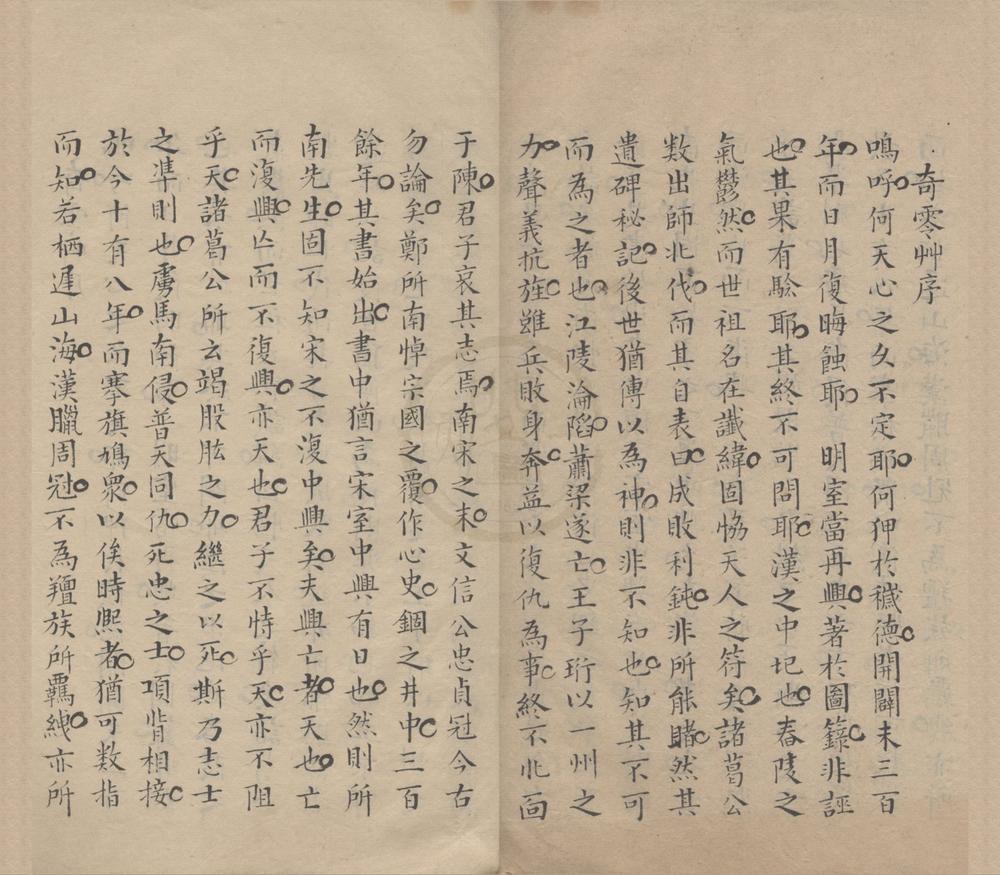 奇零艸序
嗚呼何天心之久不定耶何狎於穢德開闢未三百
年而日月復晦蝕耶　明室當再興著於圖籙非誣
也其果有驗耶其終不可問耶漢之中圮也舂陵之
氣鬱然而世祖名在讖緯固恊天人之符矣諸葛公
数出師北伐而其自表曰成敗利鈍非所能睹然其
遺碑秘記後世猶傳以為神則非不知也知其不可
而為之者也江陵淪陷蕭梁遂亡王子珩以一州之
力聲義抗旌雖兵敗身奔益以復仇為事終不北面
于陳君子哀其志焉南宋之末文信公忠貞冠今古
勿論矣鄭所南悼宗國之覆作心史錮之井中三百
餘年其書始出書中猶言宋室中興有日也然則所
南先生固不知宋之不復中興矣夫興亡者天也亡
而復興亾而不復興亦天也君子不恃乎天亦不阻
乎天諸葛公所云竭股肱之力繼之以死斯乃志士
之凖則也虜馬南侵普天同仇死忠之士項背相接
於今十有八年而搴旗鳩衆以俟時熙者猶可数指
而知若栖遲山海漢臘周冠不為羶族所羈絏亦所